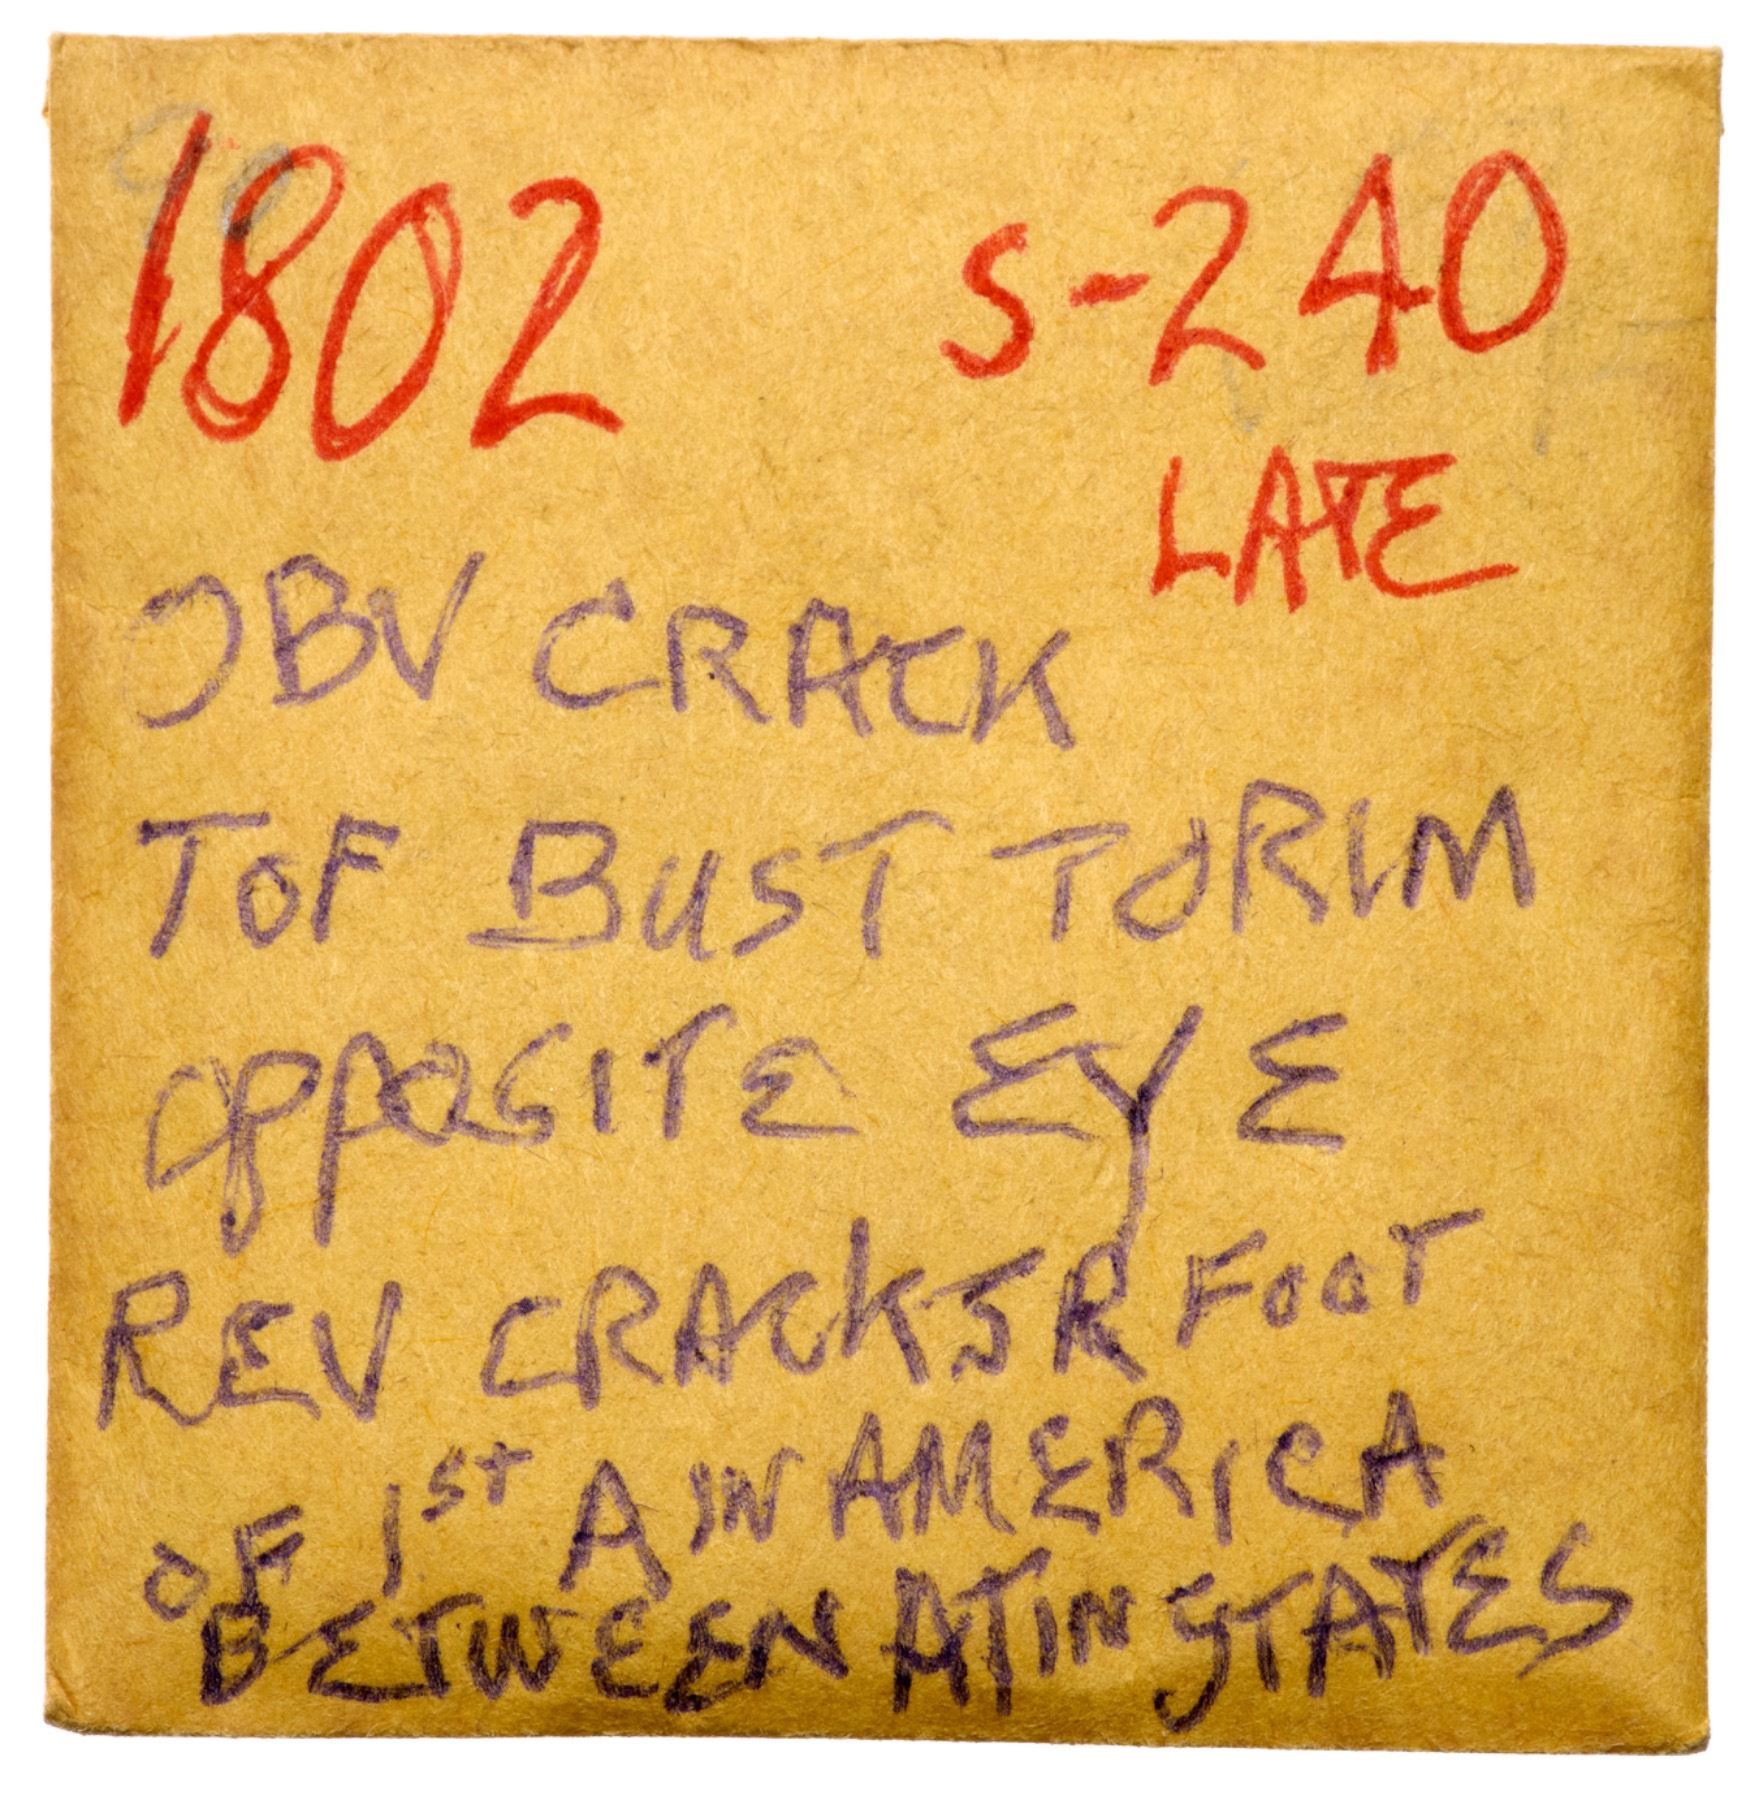 1802 S-240
LATE
OBV CRACK
T OF BUST TO RIM
OPPOSITE EYE
REV CRACKS R FOOT
OF 1st A IN AMERICA
BETWEEN AT IN STATES